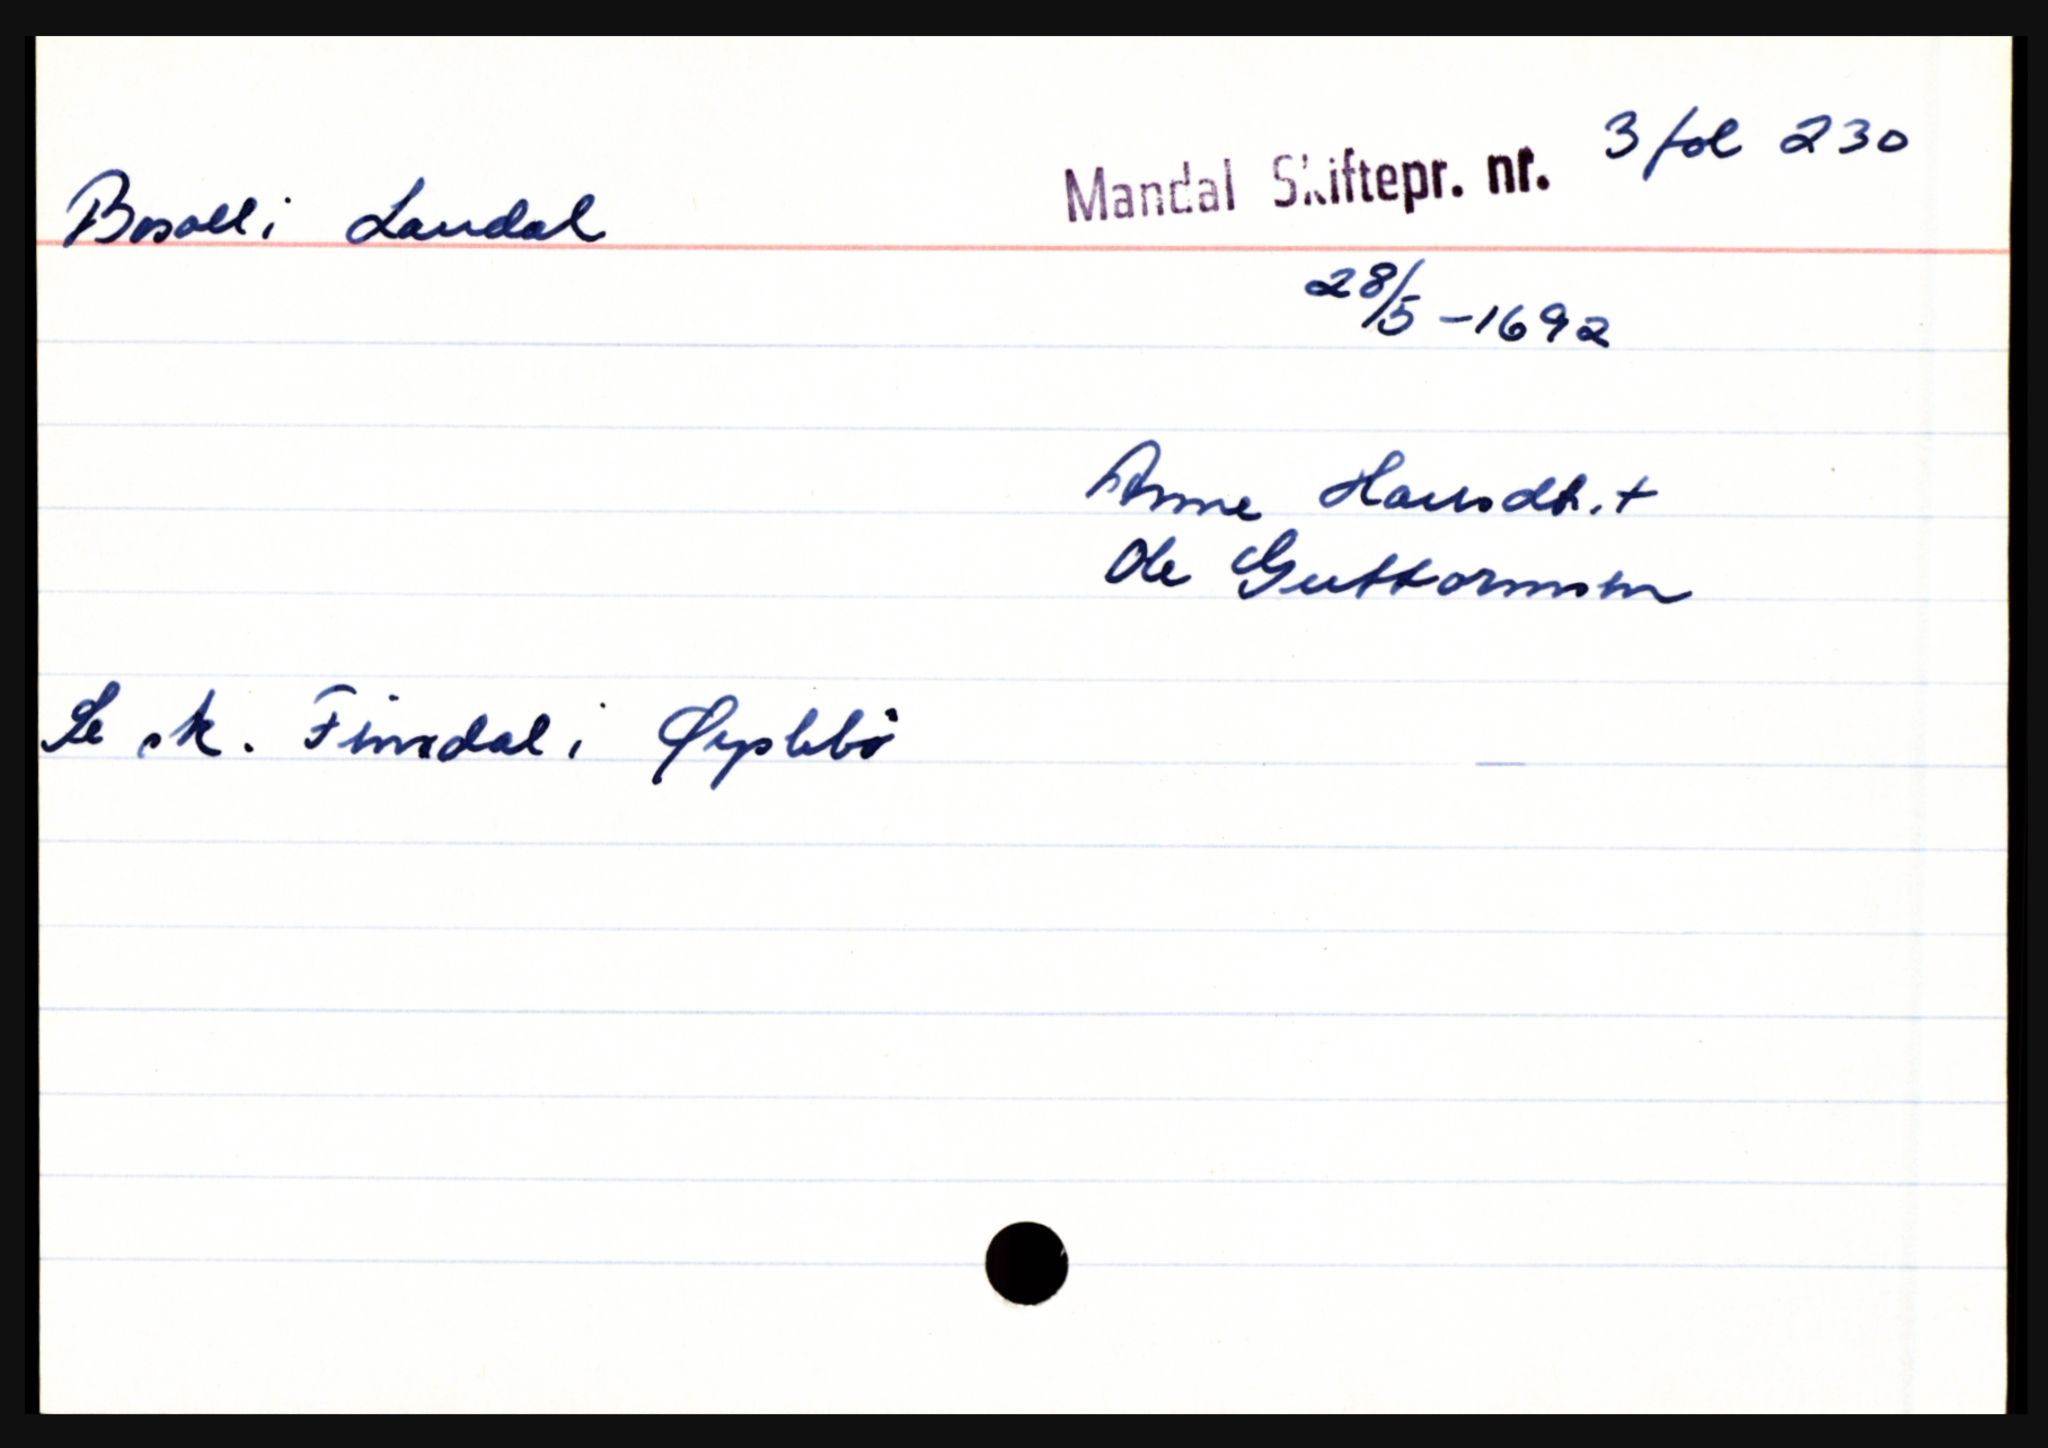 Mandal Skiftepr. nr. 3 fol 230
Bosall i Laudal
28/5 - 1692
Anne Hansdt. +
Ole Guttormsen
Se sk. Finsdal i Øyslebø